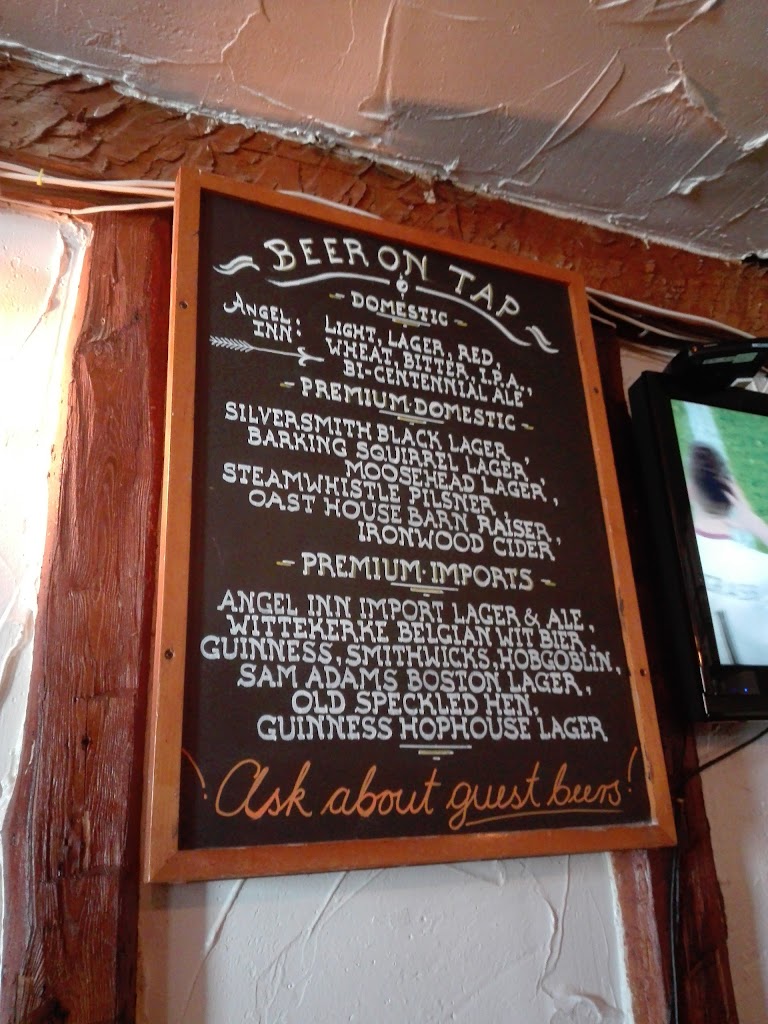 BEER ON TAP
DOMESTIC
ANGEL INN: LIGHT, LAGER, RED,
WHEAT, BITTER, I.P.A.,
BI-CENTENNIAL ALE
PREMIUM·DOMESTIC
SILVERSMITH BLACK LAGER,
BARKING SQUIRREL LAGER,
MOOSEHEAD LAGER,
STEAMWHISTLE PILSNER,
OAST HOUSE BARN RAISER,
IRONWOOD CIDER
PREMIUM·IMPORTS
ANGEL INN IMPORT LAGER & ALE,
WITTEKERKE BELGIAN WIT BIER,
GUINNESS, SMITHWICKS, HOBGOBLIN,
SAM ADAMS BOSTON LAGER,
OLD SPECKLED HEN,
GUINNESS HOPHOUSE LAGER
Ask about guest beers!